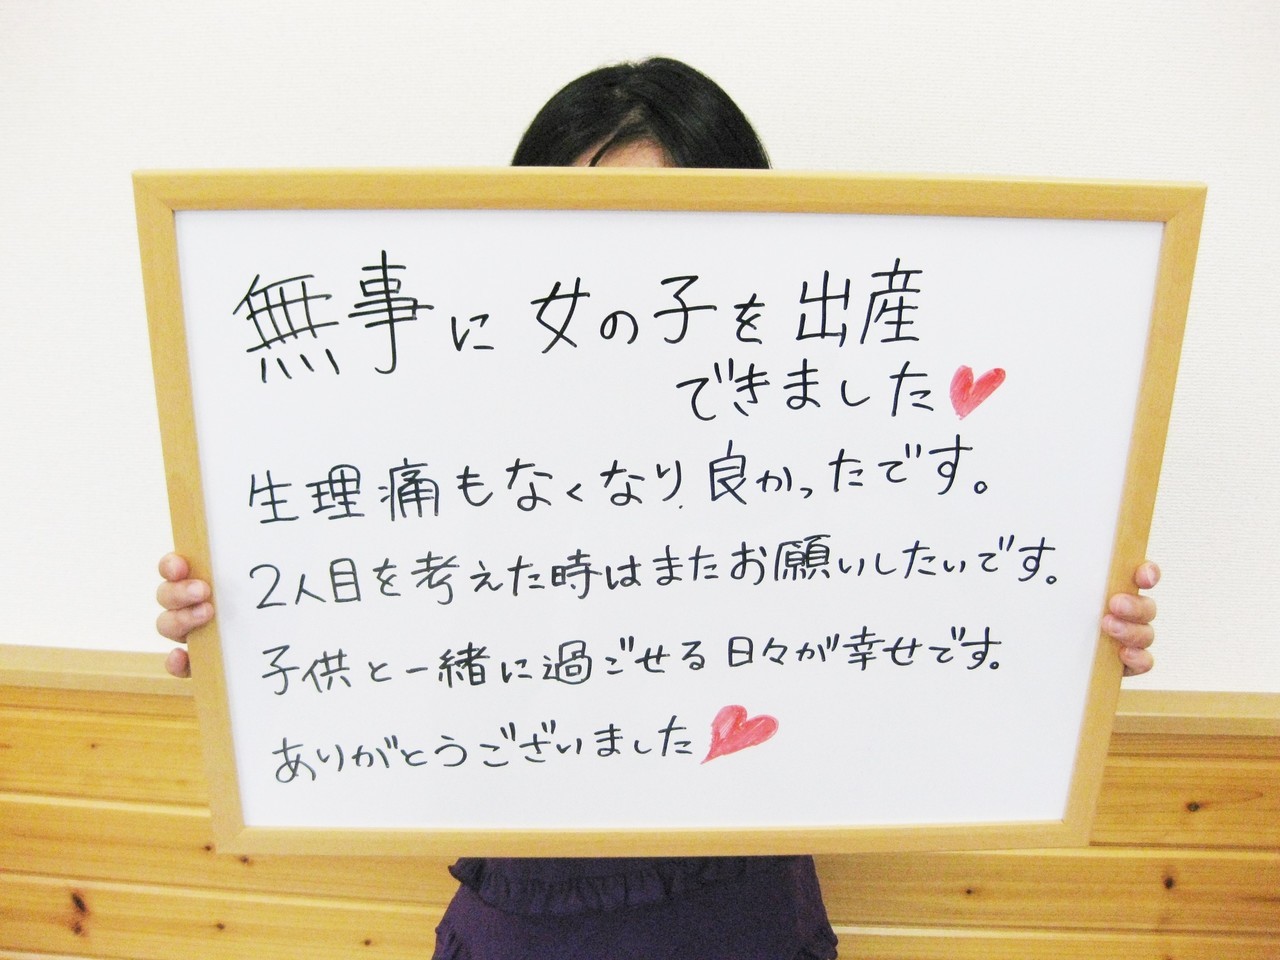 無事に女の子を出産
できました♥
生理痛もなくなり、良かったです。
2人目を考えた時はまたお願いしたいです。
子供と一緒に過ごせる日々が幸せです。
ありがとうございました♥